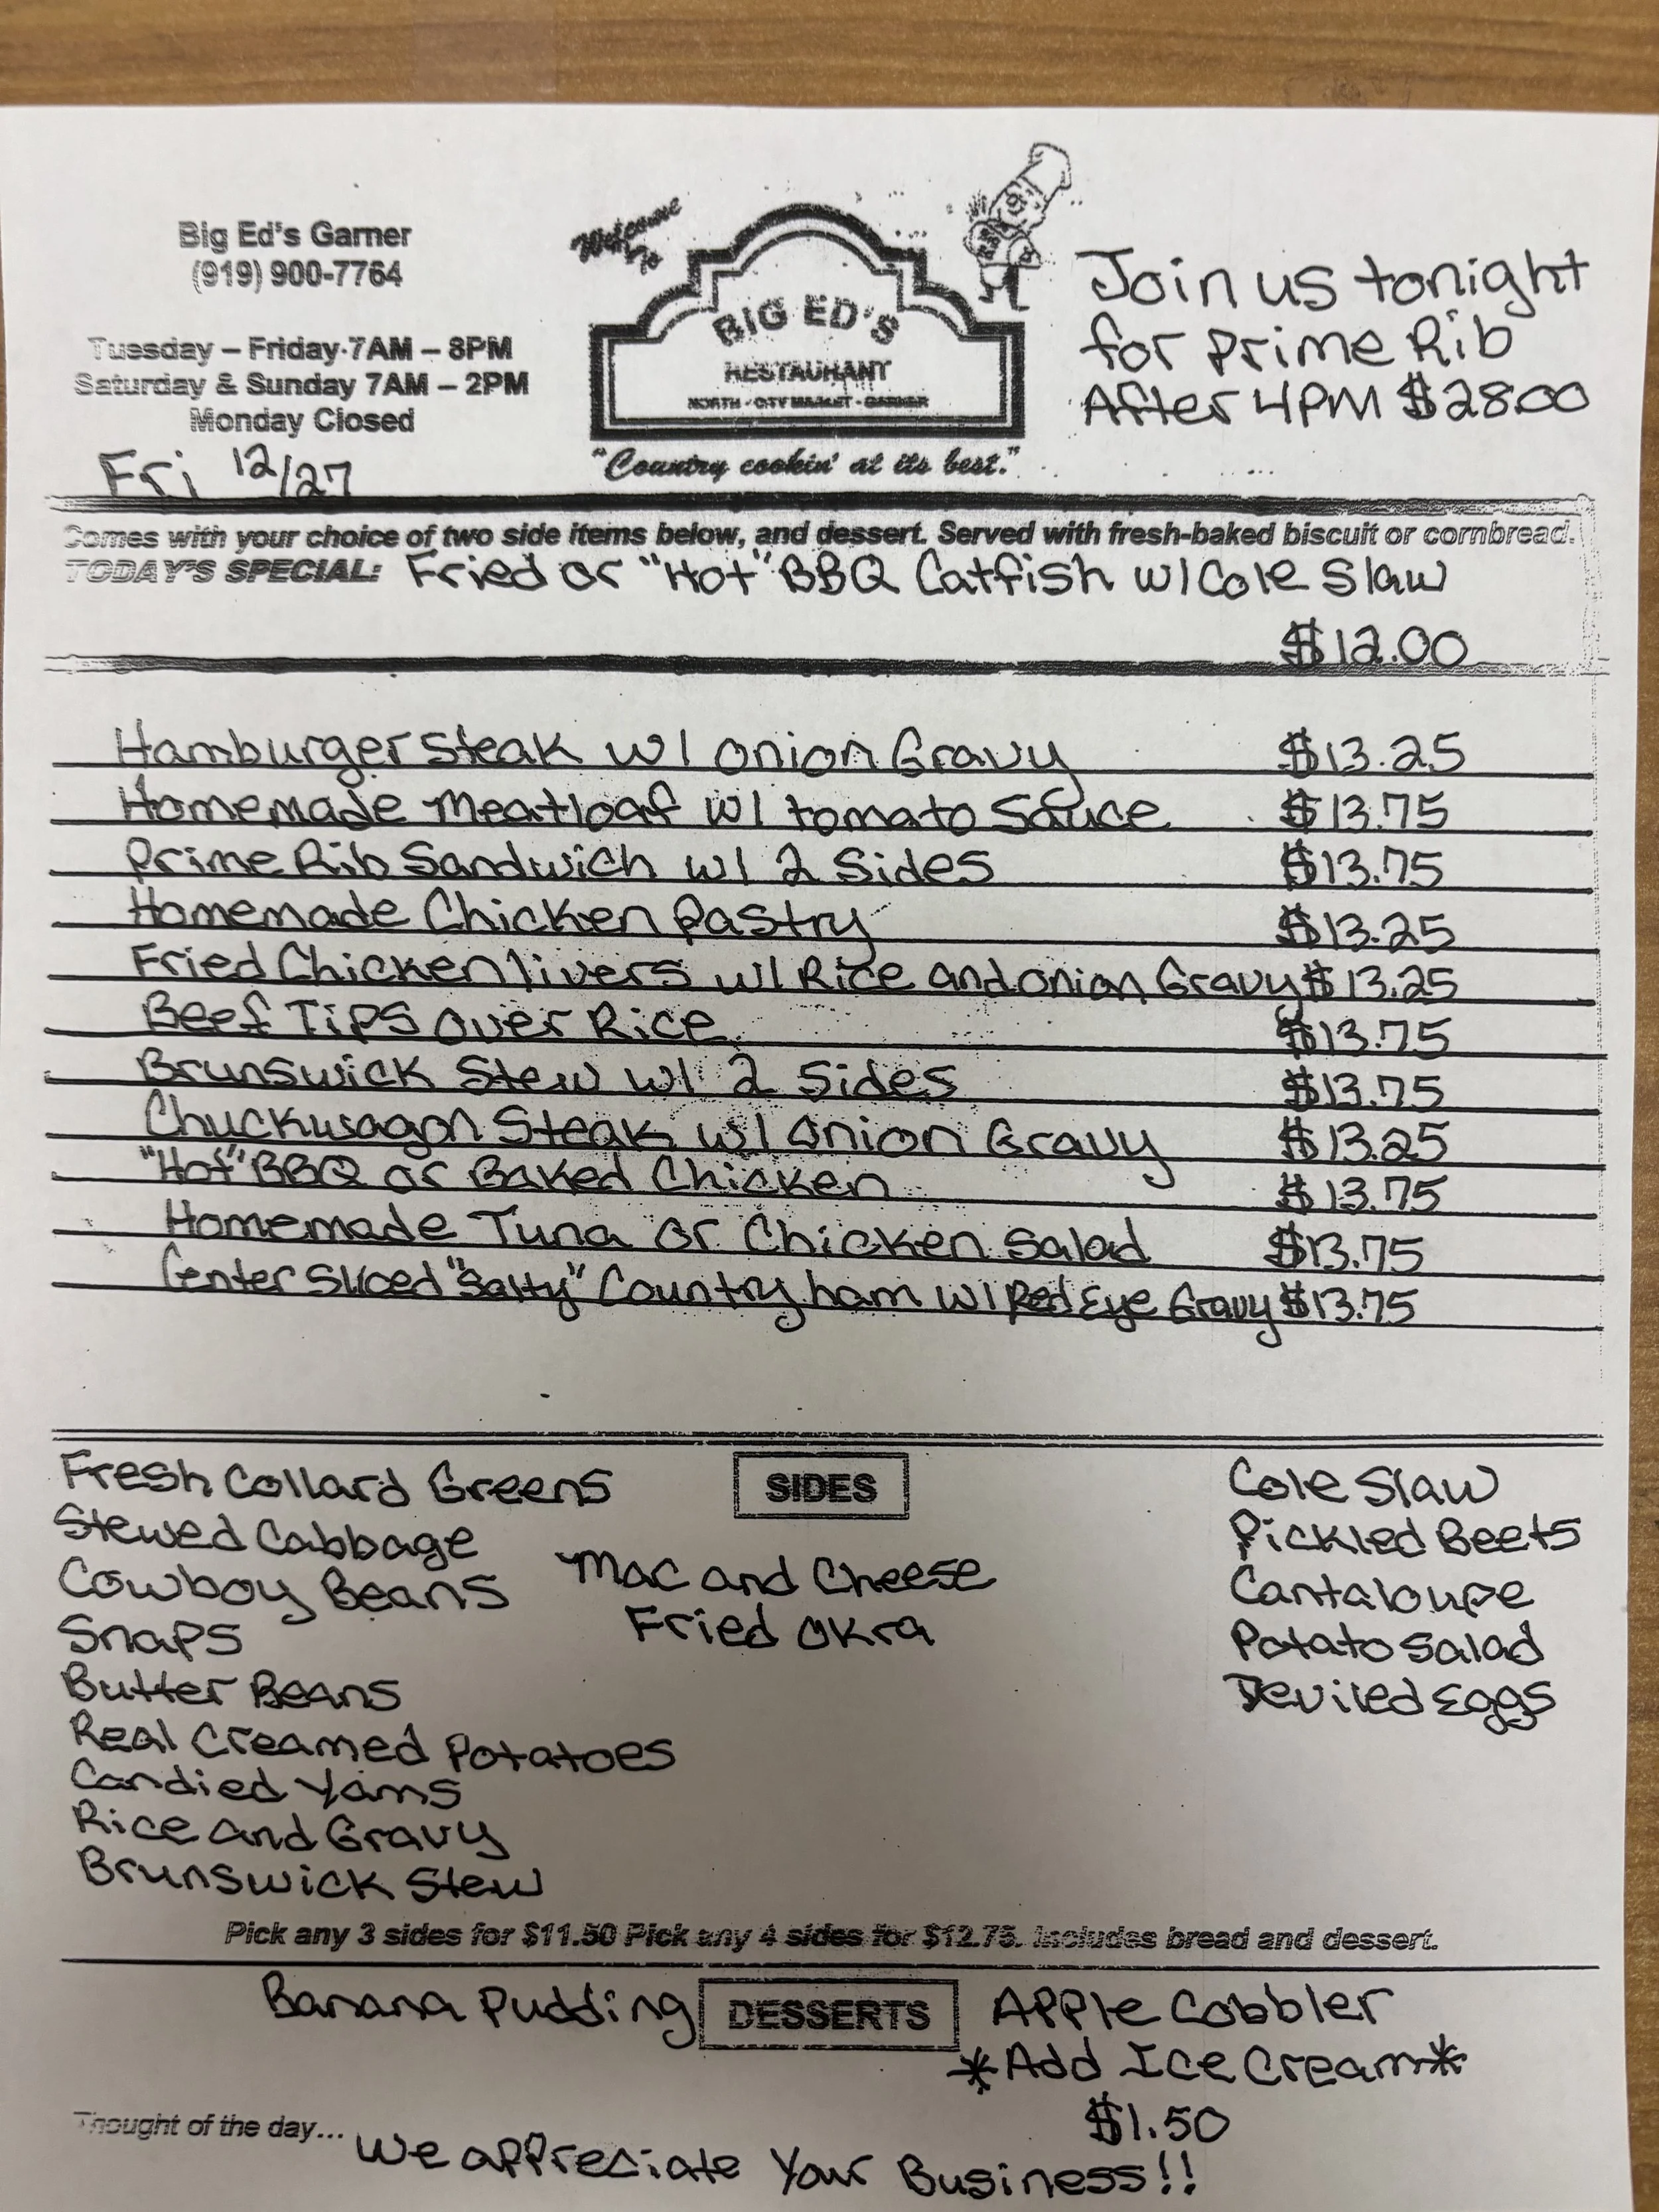 Big Ed's Garner
(919) 900-7764
Tuesday – Friday 7AM – 8PM
Saturday & Sunday 7AM – 2PM
Monday Closed
Fri 12/27
Welcome To
BIG ED'S
RESTAURANT
NORTH - CITY MARKET - GARNER
"Country cookin' at its best."
Join us tonight
for Prime Rib
After 4PM $28.00
Comes with your choice of two side items below, and dessert. Served with fresh-baked biscuit or cornbread.
TODAY'S SPECIAL: Fried or "Hot" BBQ Catfish w/ Cole Slaw
$12.00
Hamburger Steak w/ Onion Gravy $13.25
Homemade Meatloaf w/ tomato Sauce $13.75
Prime Rib Sandwich w/ 2 Sides $13.75
Homemade Chicken Pastry $13.25
Fried Chicken livers w/ Rice and onion Gravy $13.25
Beef Tips Over Rice $13.75
Brunswick Stew w/ 2 Sides $13.75
Chuckwagon Steak w/ Onion Gravy $13.25
"Hot" BBQ or Baked Chicken $13.75
Homemade Tuna or Chicken Salad $13.75
Center Sliced "Salty" Country ham w/ Red Eye Gravy $13.75
SIDES
Fresh Collard Greens
Stewed Cabbage
Cowboy Beans
Snaps
Butter Beans
Real Creamed Potatoes
Candied Yams
Rice and Gravy
Brunswick Stew
Mac and Cheese
Fried Okra
Cole Slaw
Pickled Beets
Cantaloupe
Potato Salad
Deviled Eggs
Pick any 3 sides for $11.50 Pick any 4 sides for $12.75. Includes bread and dessert.
DESSERTS
Banana Pudding
Apple Cobbler
*Add Ice Cream*
$1.50
Thought of the day... We appreciate Your Business!!